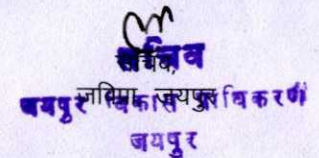 सचिव
सचिव,
जविप्रा, जयपुर
जयपुर विकास प्राधिकरण
जयपुर